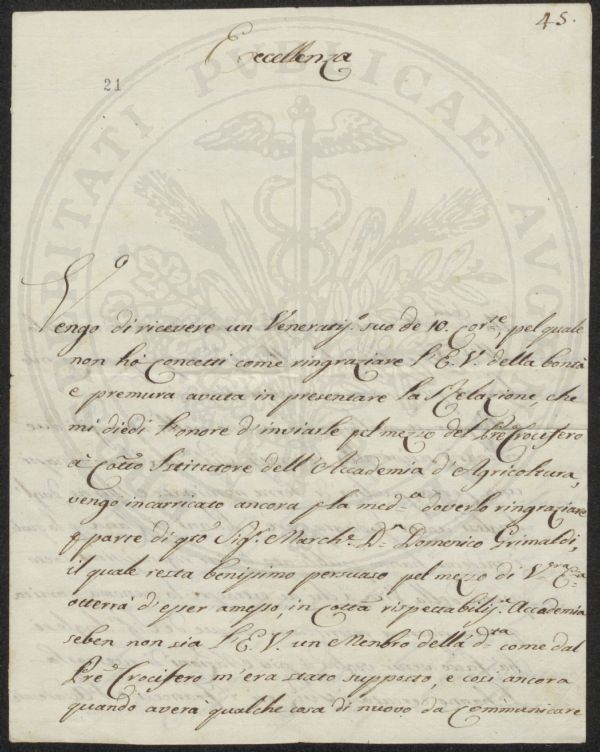 45.
Excellenza
21
Vengo di ricevere un Veneratis.º suo de 10. Corte, pel quale
non hò concetti come ringraziare l'E.V. della bontà
e premura avuta in presentare la Relazione, che
mi diedi l'onore d'inviarle pel mezzo del Pre Crocifero
à Cotto Istitutore dell'Accademia d'Agricoltura,
vengo incarricato ancora p la meda doverlo ringraziare
p parte di qto Sigr. Marche. Dn Domenico Grimaldi,
il quale resta benissimo persuaso pel mezo di Vra Ecca
otterrà d'esser amesso, in cotta rispettabilissa Accademia
seben non sia l'E.V. un Menbro della dta come dal
Pre Crocifero m'era stato supposto, e così ancora
quando averà qualche cosa di nuovo da Communicare
RITATI PVBLICAE AVG